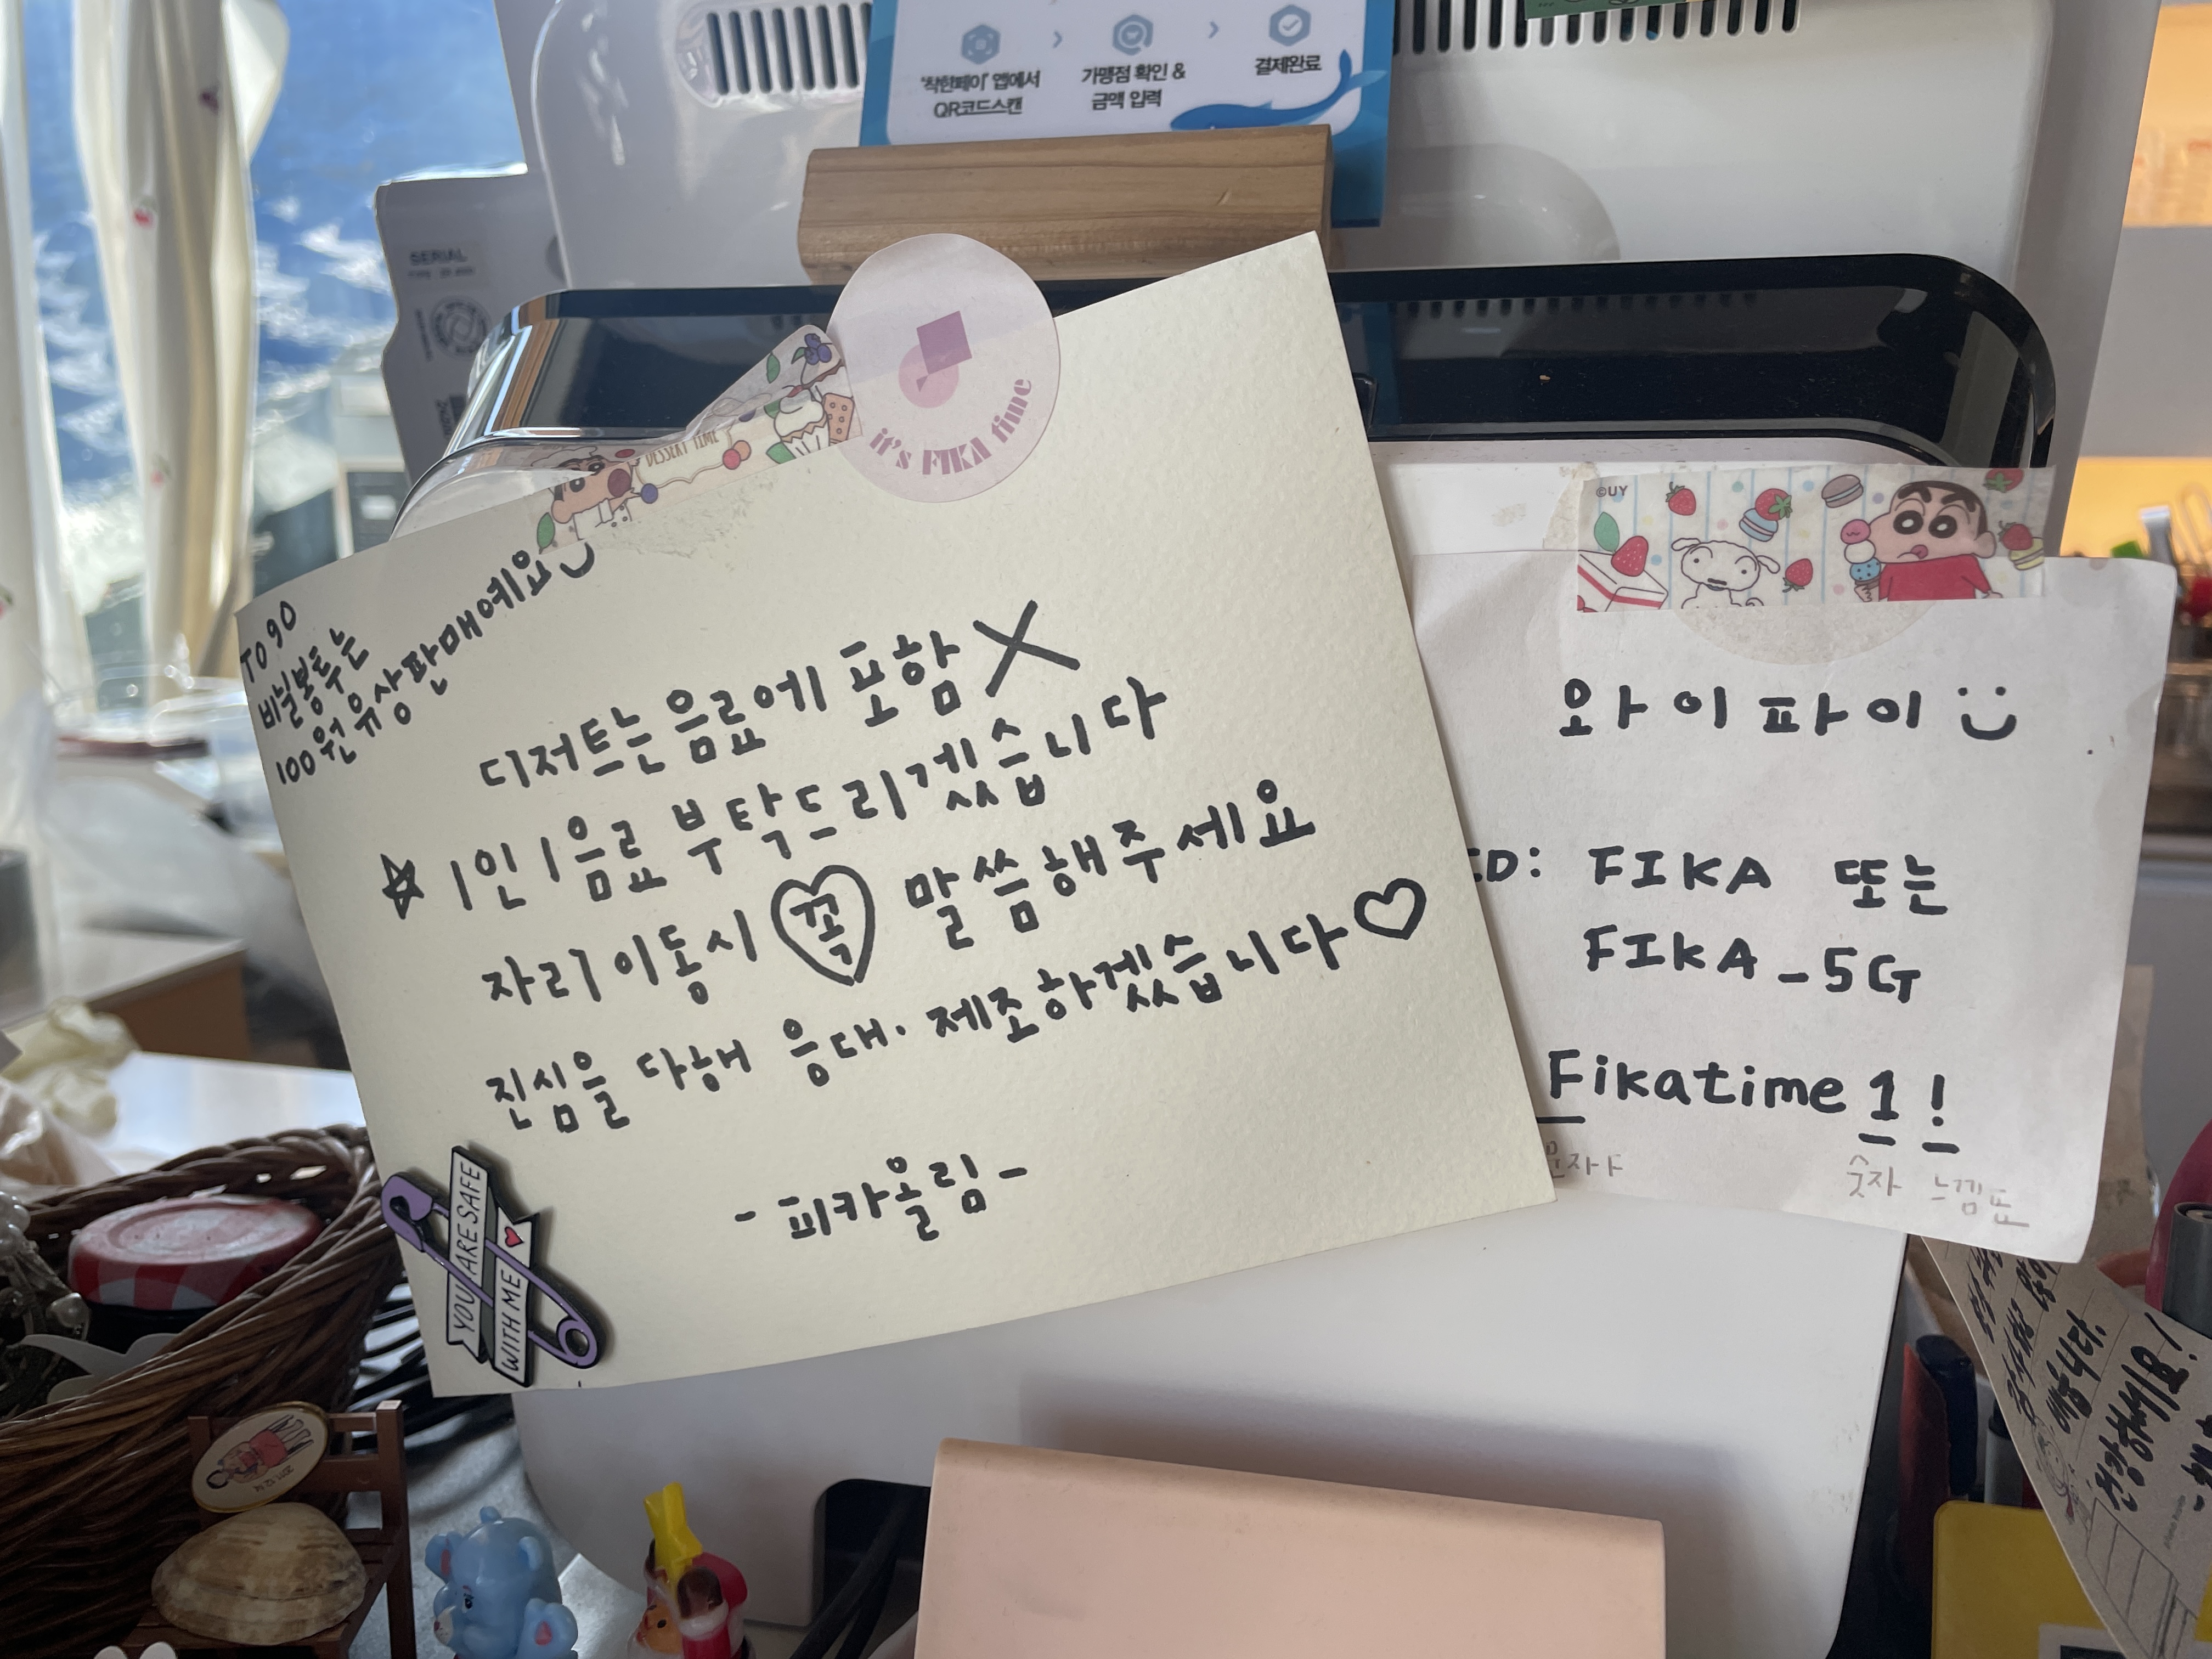 '착한페이' 앱에서
QR코드스캔
가맹점 확인 &
금액 입력
결제완료
SERIAL
it's FIKA fine
DESSERT TIME
TO GO
비닐봉투는
100원 유상판매예요
디저트는 음료에 포함 X
☆ 1인 1음료 부탁드리겠습니다
자리 이동시 꼭 말씀해주세요
진심을 다해 응대·제조하겠습니다♡
- 피카올림 -
YOU ARE SAFE
WITH ME
©UY
와이파이
ID: FIKA 또는
FIKA_5G
Fikatime1!
숫자 느낌표
배웁니다.
건강하세요!